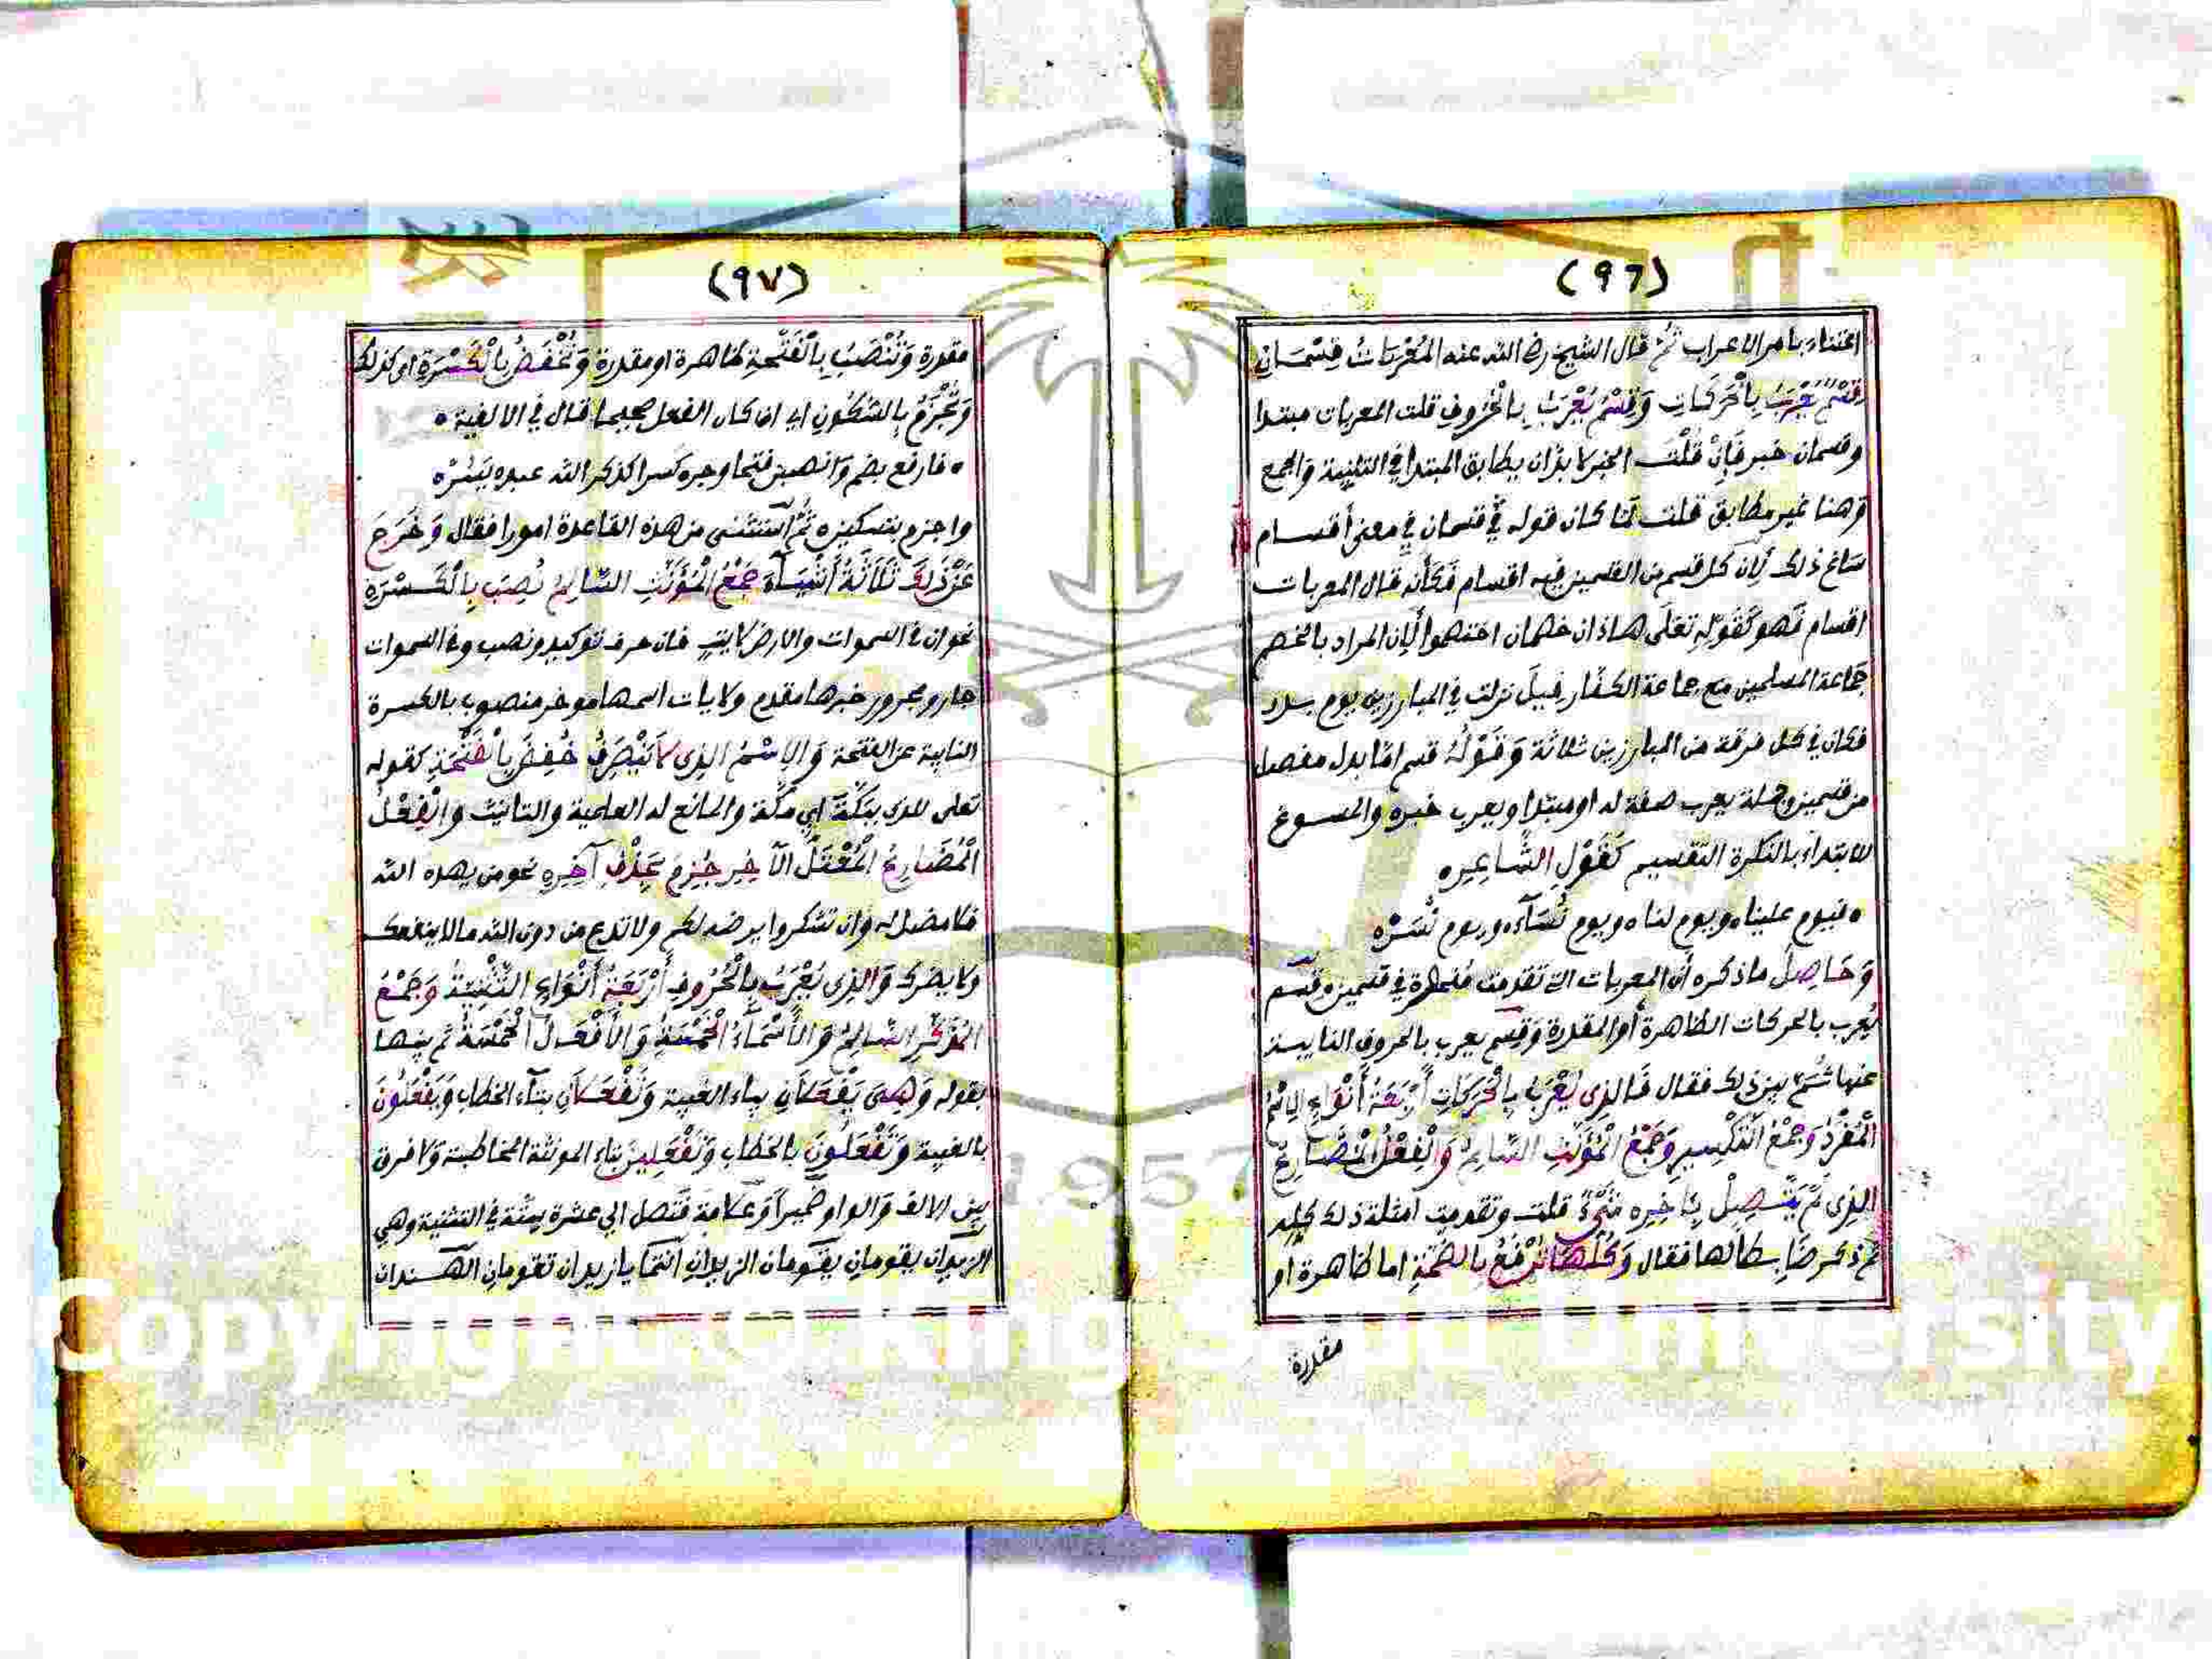 (٩٦)
اعتناء بامر الاعراب ثُمَّ قال الشيخ رضي الله عنه المُعْرَبَاتُ قِسْمَانِ
قِسْمٌ يُعْرَبُ بِالْحَرَكَاتِ وَقِسْمٌ يُعْرَبُ بِالْحُرُوفِ قلت المعربات مبتدا
وقسمان خبر فَإِنْ قُلْتَ الخبر لا بدَّ ان يطابق المبتدا في التثنية وَالجمع
وَهنا غير مطابق قلت لَمَّا كان قوله قسمان في معنى أقسام
سَاغ ذلك لِأن كل قسم من القسمين فيه اقسام فَكَأَنه قال المعربات
اقسام فَهو كَقَوْلِهِ تَعَلَى هاذان خصمان اختصموا لِأن المراد بالخصم
جَماعة المسلمين مع جماعة الكفار قِيلَ نزلت في المبارزين يوم بدر
فكان في كل فرقة من المبارزين ثلاثة وَقَوْلُهُ قسم امَّا بدل مفصل
من قسمين وجملة يعرب صفة له او مبتدا ويعرب خبره والمسوغ
للابتداء بالنكرة التقسيم كَقَوْلِ الشَّاعِرِ ه
ه فيوم علينا ه ويوم لنا ه ويوم نُسَآء ه ويوم نُسَرّ ه
وَحَاصِلُ ماذكره أن المعربات التي تقدمت منحصرة في قسمين قسم
يُعرب بالحركات الظاهرة أو المقدرة وَقِسم يعرب بالحروف النايبة
عنها ثُمَّ بين ذلك فقال فَالذِى يُعْرَبُ بِالْحَرَكَاتِ أَرْبَعَةُ أَنْوَاعٍ الِاسْمُ
الْمُفْرَدُ وَجَمْعُ التَّكْسِيرِ وَجَمْعُ الْمُؤَنَّثِ السَّالِمُ وَالْفِعْلُ الْمُضَارِعُ
الذِى لَمْ يَتَّصِلْ بِئَاخِرِهِ شَىْءٌ قلت وتقدمت امثلة ذلك كله
ثم ذكر ضابطا لها فقال وَكُلُّهَا تُرْفَعُ بِالضَّمَّةِ اما ظاهرة او
مقدرة
(٩٧)
مقدرة وَتُنْصَبُ بِالْفَتْحَةِ ظاهرة او مقدرة وَتُخْفَضُ بِالْكَسْرَةِ اى كذلك
وَتُجْزَمُ بِالسُّكُونِ اي ان كان الفعل صحيحا قال في الالفية ه
ه فارفع بضم وَانصبن فتحا وجر ه كسرا كذكر الله عبده يَسُرّ ه
واجزم بتسكين ه ثُمَّ استثنى من هذه القاعدة امورا فقال وَخَرَجَ
عَنْ ذَلِكَ ثَلَاثَةُ أَشْيَآءَ جَمْعُ الْمُؤَنَّثِ السَّالِمُ نُصِبَ بِالْكَسْرَةِ
نحو ان في السموات والارض لايتٍ فان حرف توكيد ونصب وفي السموات
جار ومجرور خبرها مقدم ولايات اسمها موخر منصوب بالكسرة
النايبة عن الفتحة وَالِاسْمُ الذِى لَا يَنْصَرِفُ خُفِضَ بِالْفَتْحَةِ كقوله
تعلى للذى ببَكَّةَ اي مكة والمانع له العلمية والتانيث وَالْفِعْلُ
الْمُضَارِعُ الْمُعْتَلُّ الآخِرِ جُزِمَ بِحَذْفِ آخِرِهِ نحو من يهده الله
فلا مضل له وان تشكروا يرضه لكم ولا تدع من دون الله ما لا ينفعك
ولا يضرك وَالذِى يُعْرَبُ بِالْحُرُوفِ أَرْبَعَةُ أَنْوَاعٍ التَّثْنِيَةُ وَجَمْعُ
الْمُذَكَّرِ السَّالِمُ وَالْأَسْمَاءُ الْخَمْسَةُ وَالْأَفْعَالُ الْخَمْسَةُ ثم بينها
بقوله وَهِىَ يَفْعَلَانِ بياء الغيبة وَتَفْعَلَانِ بتآء الخطاب وَيَفْعَلُونَ
بالغيبة وَتَفْعَلُونَ بالخطاب وَتَفْعَلِينَ بتاء المونثة المخاطبة وَلا فرق
بين الالف وَالواو ضميرا وَعلامة فَتَصل الى عشرة ستّة في التثنية وهي
الزيدان يقومان يقومان الزيدان أنتما يا زيدان تقومان الهندان